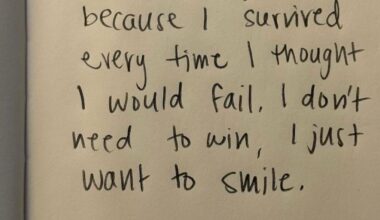 because I survived
every time I thought
I would fail. I don't
need to win, I just
want to smile.